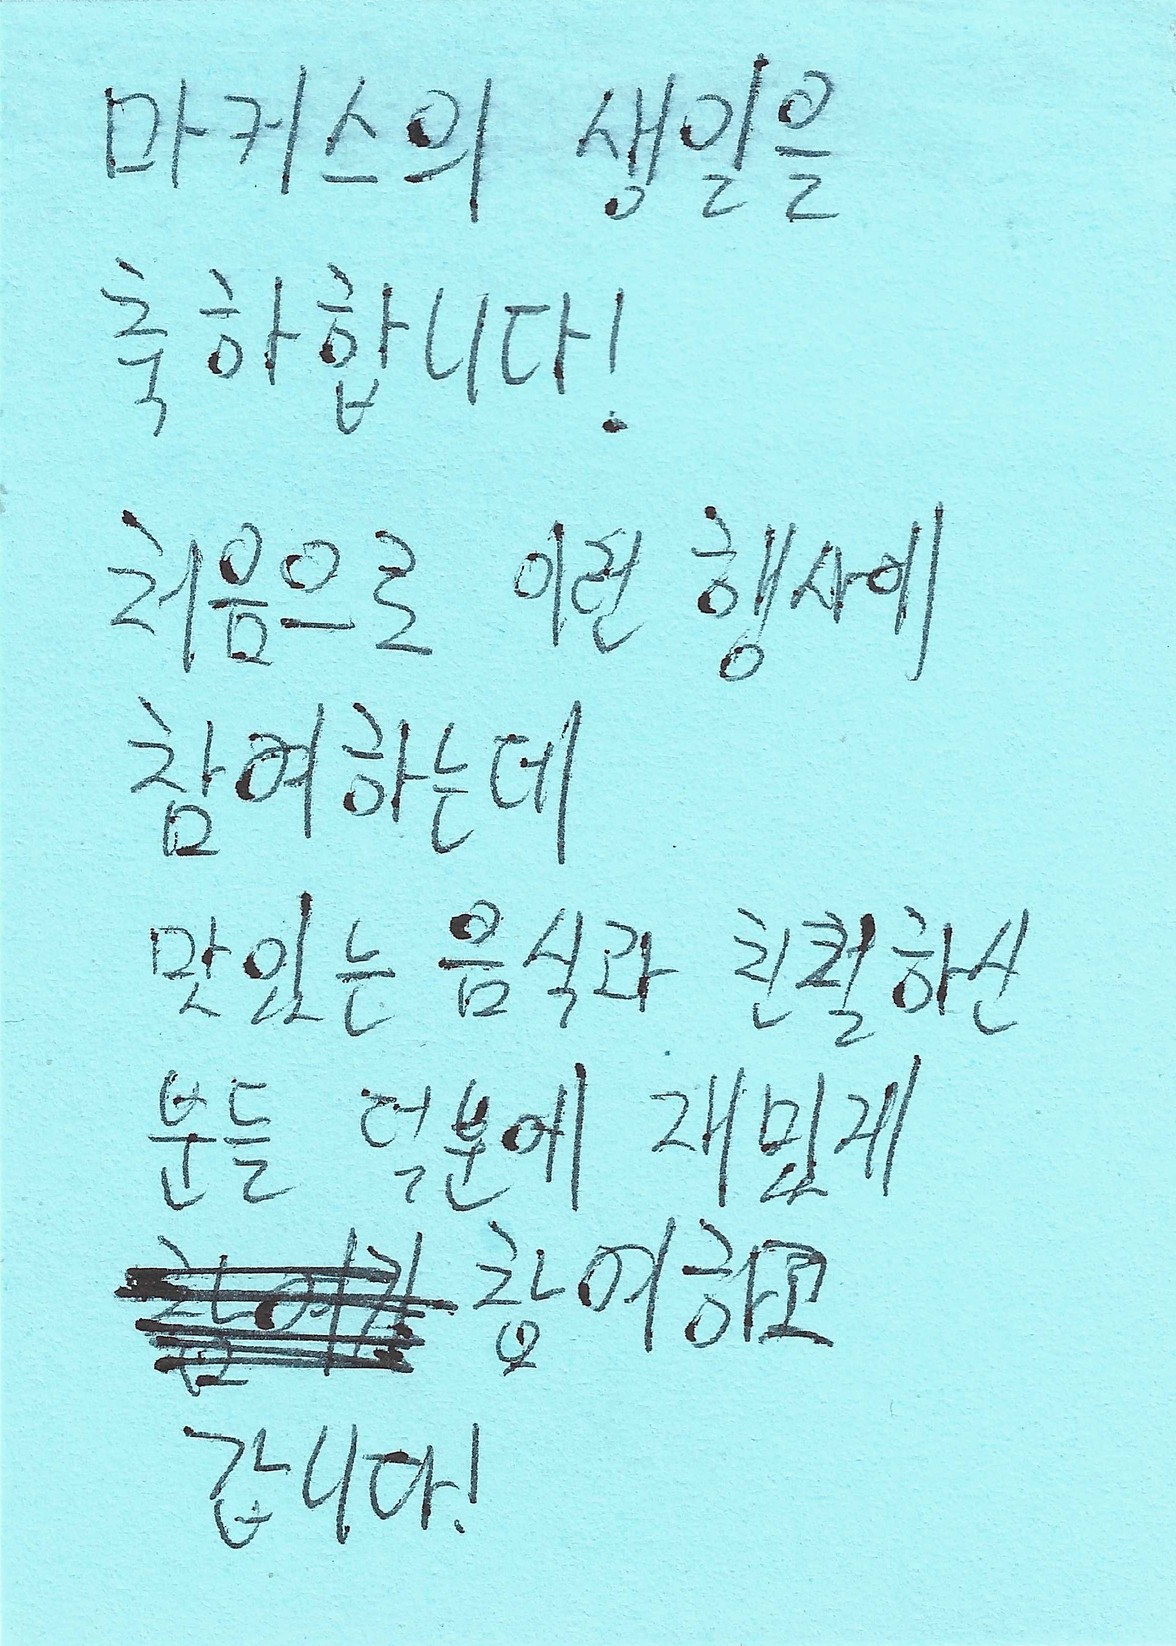 마커스의 생일을
축하합니다!
처음으로 이런 행사에
참여하는데
맛있는 음식과 친절하신
분들 덕분에 재밌게
참여하고
갑니다!